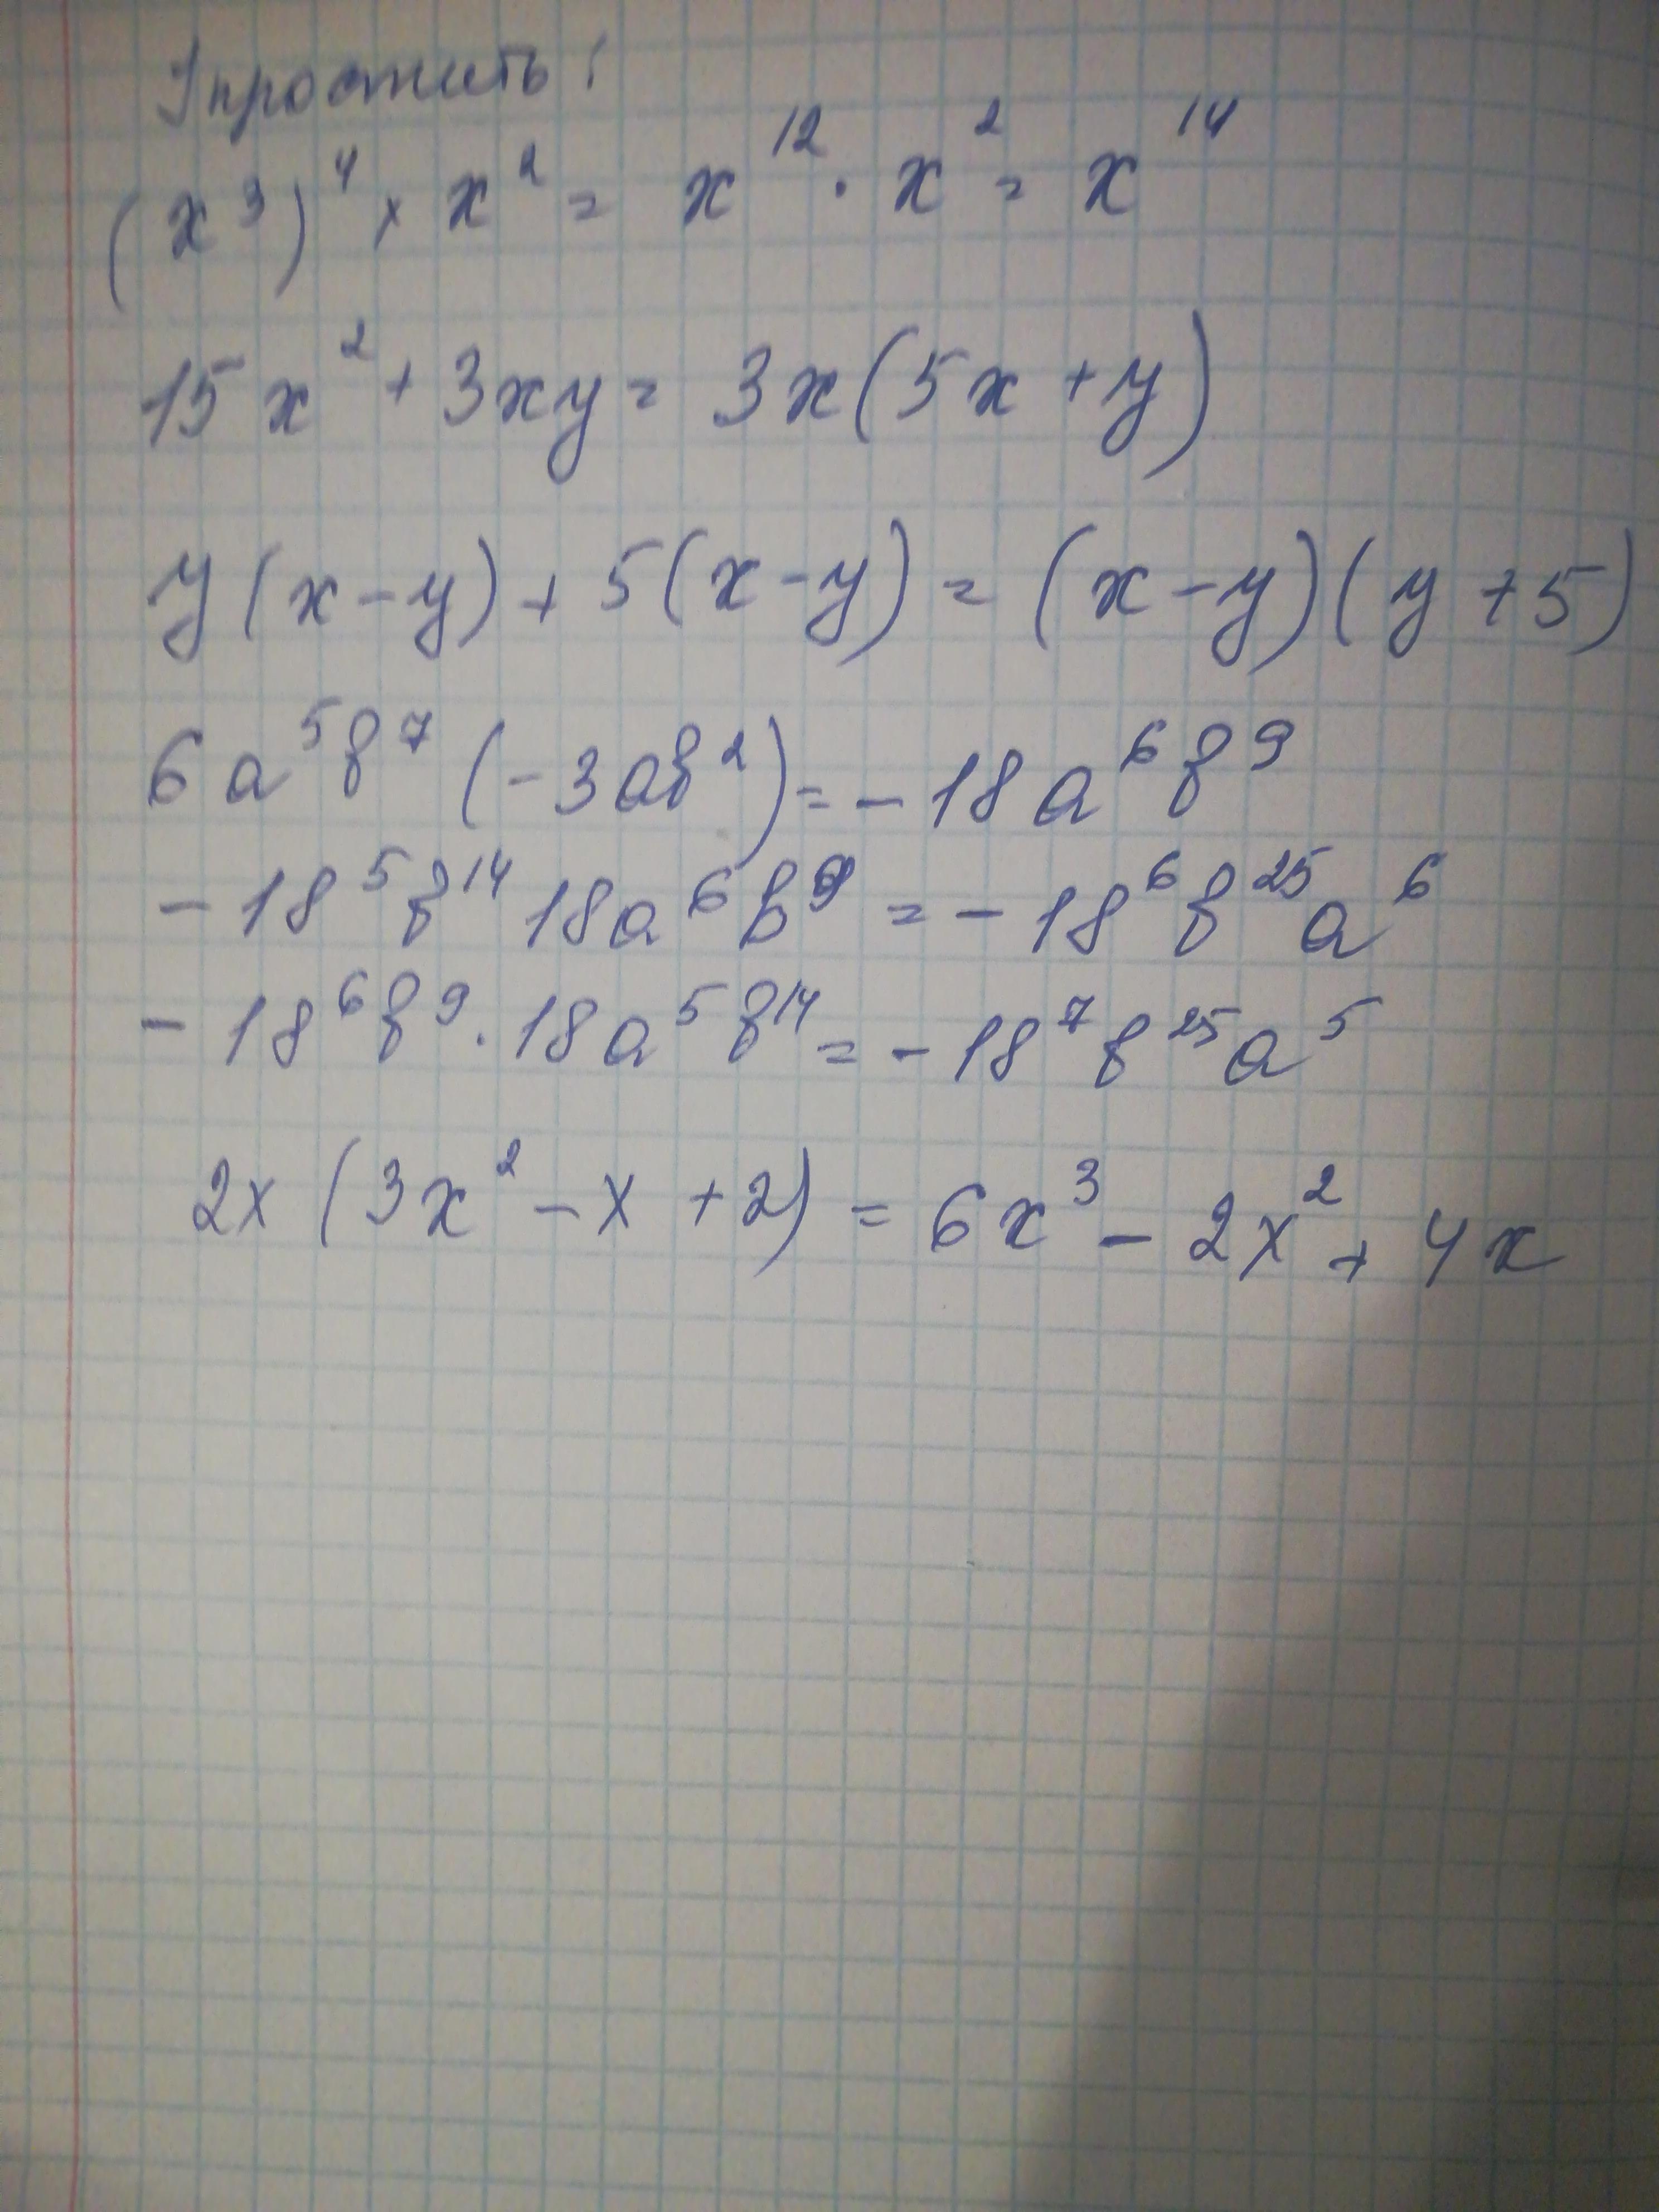 Упростить:
(x³)⁴ × x² = x¹² · x² = x¹⁴
15x² + 3xy = 3x(5x + y)
y(x - y) + 5(x - y) = (x - y)(y + 5)
6a⁵b⁷(-3ab²) = -18a⁶b⁹
-18⁵b¹⁴ 18a⁶b⁹ = -18⁶b²⁵a⁶
-18⁶b⁹ · 18a⁵b¹⁴ = -18⁷b²⁵a⁵
2x(3x² - x + 2) = 6x³ - 2x² + 4x